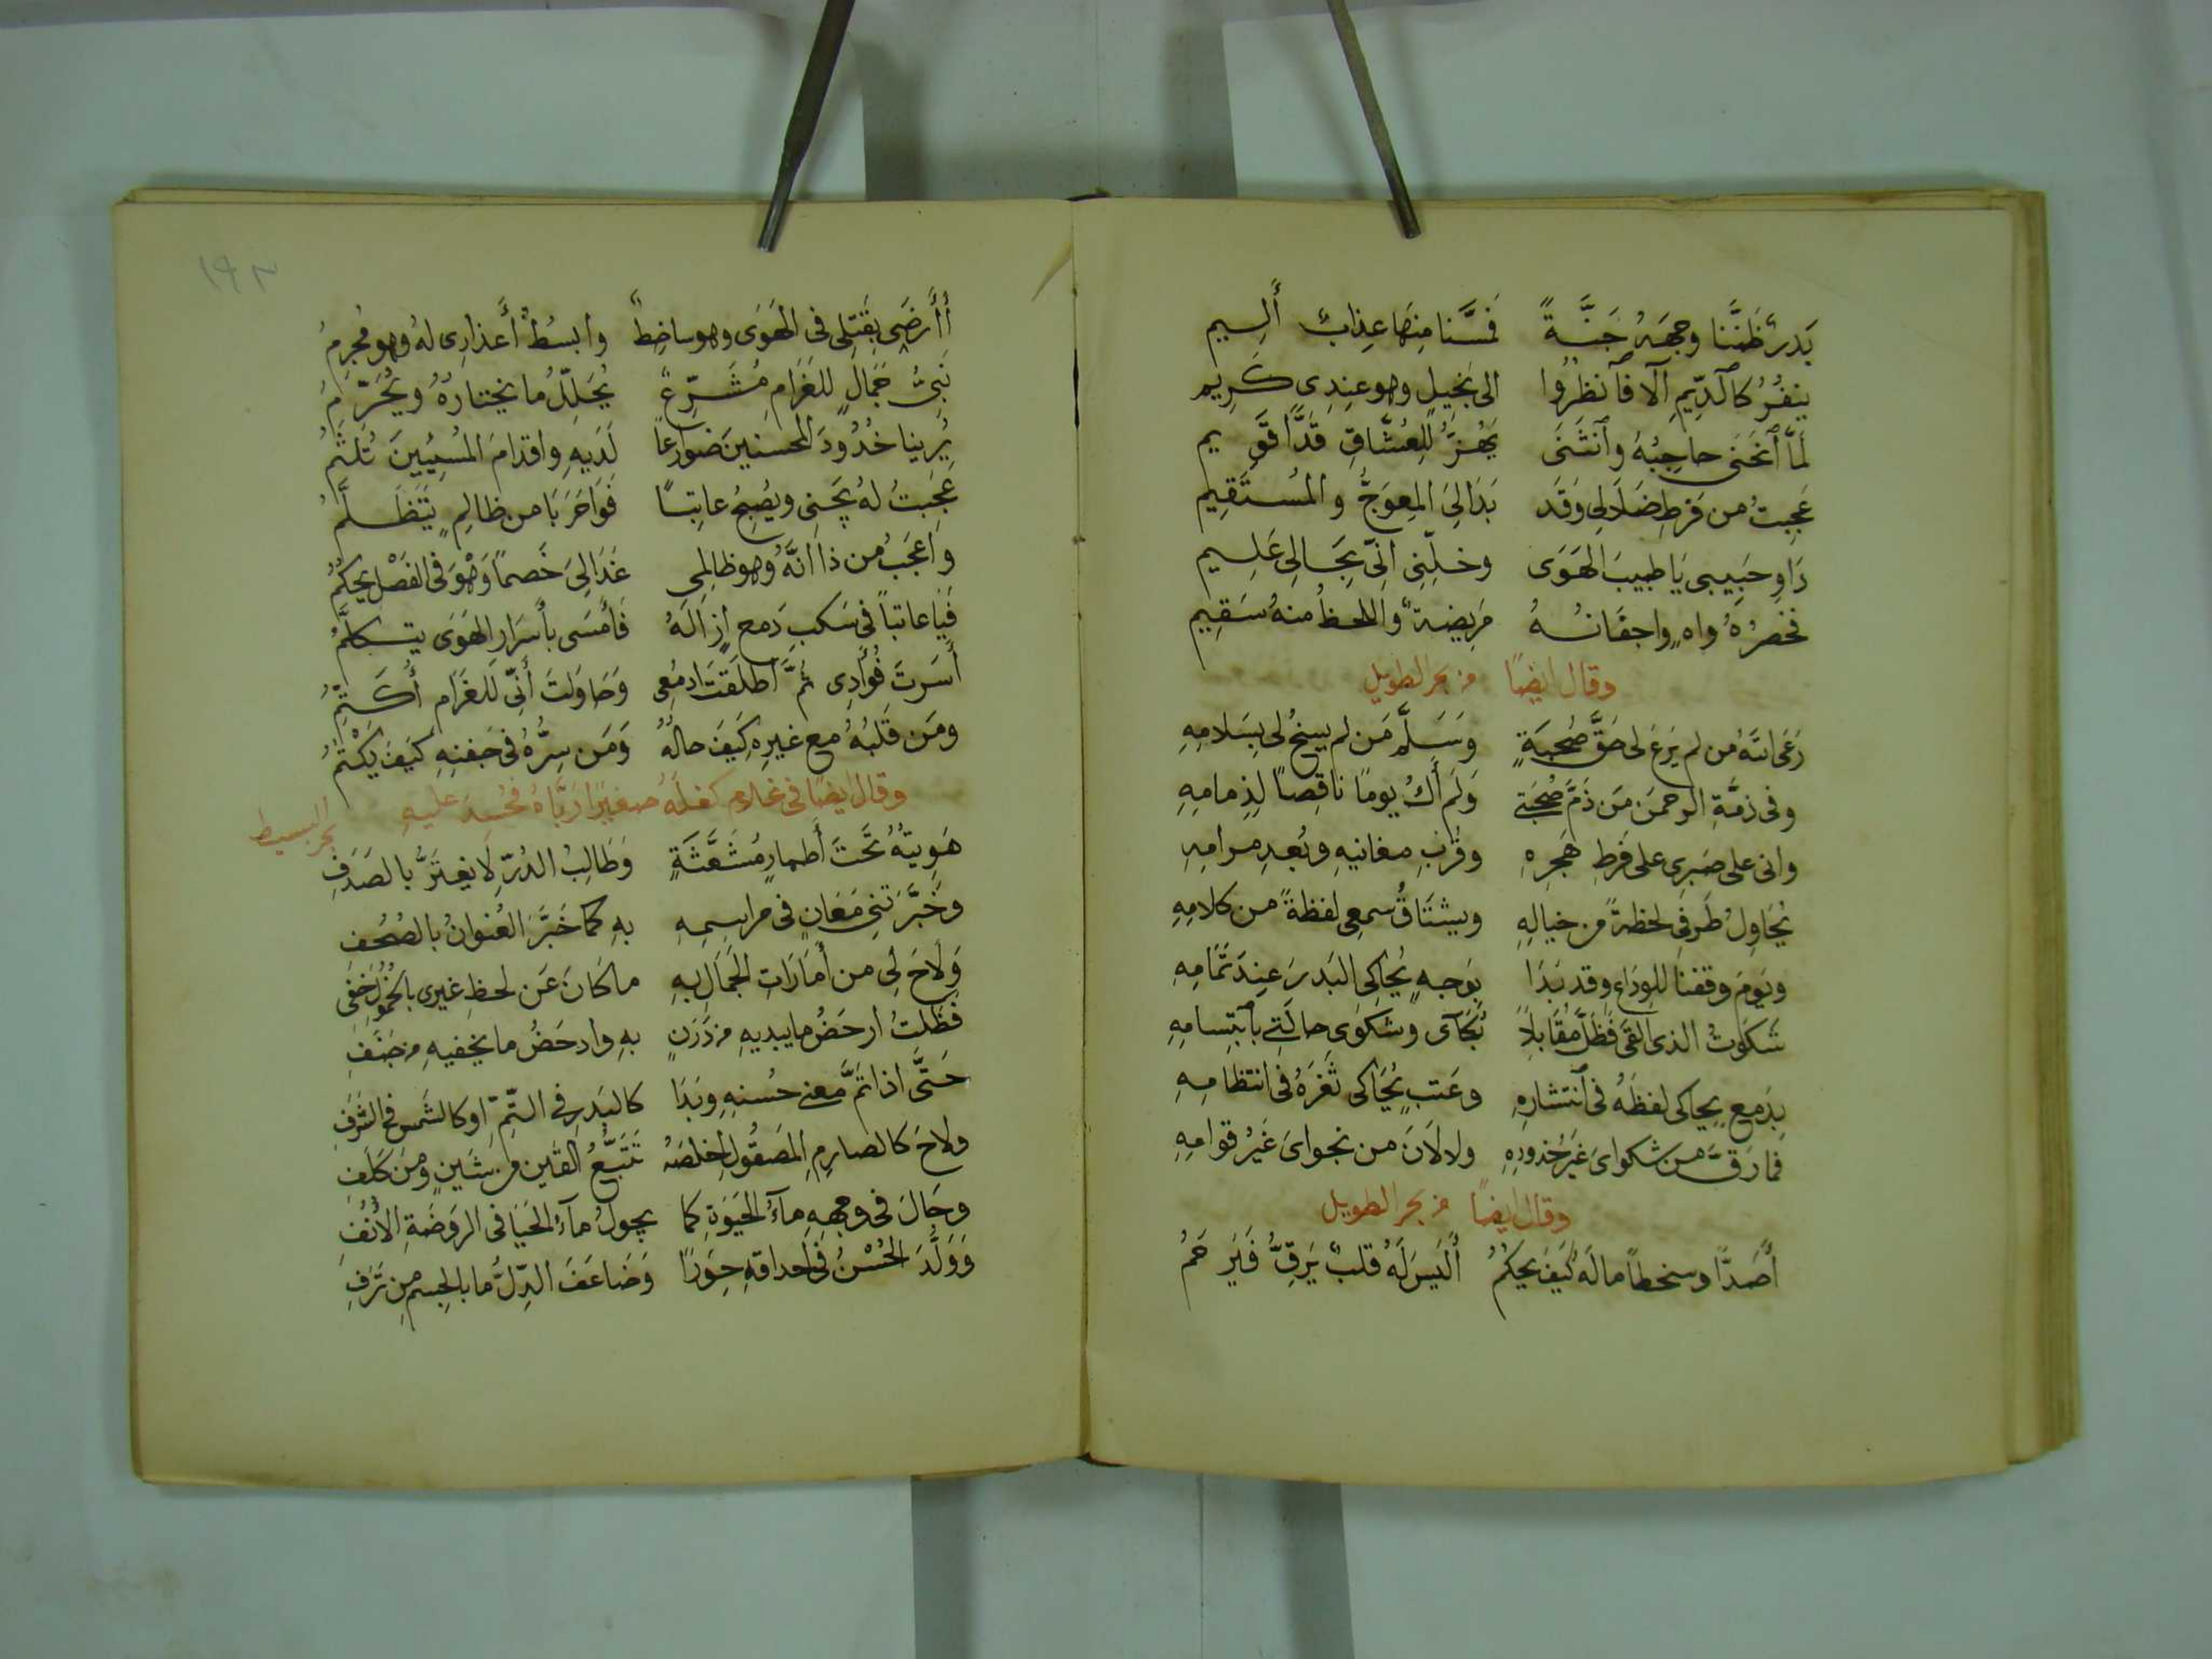 بَدرٌ ظَنَنَّا وجهَهُ جَنَّةً فَمسَّنا مِنهَا عِذابٌ أَلِيم
ينفُرُ كالدِّيمِ الا فانظُرُوا الى بَخيلٍ وهو عِندِى كَرِيم
لمَّا اَنحَنَى حاجِبُهُ وَانثَنَى يَهُزُّ للِعُشَّاقِ قَدًّا قَوِيم
عَجِبتُ من فَرطِ ضَلَالِى وَقَد بَدَا لِىَ المِعوَجُّ والمُستَقِيم
دَاوِ حَبِيبى يَا طبيبَ الهَوَى وخلِّنِى انّى بِحَالِى عَلِيم
فخصرُهُ واهٍ واجفَانُهُ مَرِيضةٌ واللحظُ منهُ سَقِيم
وقال ايضًا من بحر الطويل
رَعَى اللهُ من لم يَرعَ لى حَقَّ صُحبَةٍ وَسَلَّم مَن لم يسخُ لى بِسَلامِهِ
وفى ذمَّةِ الرحمنِ مَن ذَمَّ صُحبَتى وَلَم أَكُ يومًا ناقِصًا لِذِمامِهِ
وانى على صَبرِى على فَرطِ هَجرِهِ وقُربِ مغانيهِ وبُعدِ مرامِهِ
يُحَاوِلُ طَرفى لحظةً من خيالِهِ ويشتَاقُ سمعى لفظةً من كلامِهِ
ويَومَ وقفنا للوِدَاعِ وقد بَدَا بوَجهٍ يُحَاكِى البَدرَ عِندَ تَمَامِهِ
شَكَوتُ الذى القَى فَظَلَّ مُقَابلاً بُكآى وشكوَى حالَتى بابتِسامِهِ
بِدَمعٍ يحاكى لفظَهُ فى انتشارِهِ وعَتبٍ يُحَاكى ثَغرَهُ فى انتظامِهِ
فما رَقَّ من شكواىَ غَيرُ خُدودِهِ ولا لَانَ من نجواىَ غَيرُ قوامِهِ
وقال ايضًا من بحر الطويل
أَصَدًّا وسخطاً مالَهُ كَيفَ يحكُمُ أَلَيسَ لَهُ قلبٌ يَرِقُّ فَيَرحَمُ
١٩٢
أَأَرضَى بِقَتلِى فى الهَوَى وهو ساخِطٌ وابسُطُ أَعذارِى لهُ وهو مُجرِمُ
نَبِىُّ جَمَالٍ للغَرَامِ مُشَرِّعٌ يُحَلِّلُ ما يختارُهُ ويُحَرِّمُ
يُرِينا خُدُودَ المحسنينَ ضوارعاً لَدَيهِ واقدامَ المُسِيئِينَ تُلثَمُ
عجِبتُ لهُ يَجنِى ويُصبِحُ عاتِباً فَوَاحَرَبَا من ظالِمٍ يَتَظَلَّمُ
واعجَبُ من ذا انَّهُ وهو ظالِمى غَدَا لِىَ خَصماً وَهْوَ فى الفَصْلِ يحكُمُ
فَيَا عاتباً فى سَكبِ دَمعٍ ازالَهُ فَأَمسَى بأَسرَارِ الهَوَى يتكلَّمُ
أَسَرتَ فُؤَادِى ثُمَّ اطلَقتَ ادمُعِى وَحاوَلتَ أَنّى للغَرَامِ أُكَتِّمُ
ومَن قَلبُهُ مع غيرِهِ كَيفَ حالُهُ وَمَن سِرُّهُ فى جَفنِهِ كَيفَ يَكْتُمُ
وقال ايضًا فى غلامٍ كفلَهُ صغيرًا ربَّاهُ فحُسِدَ عليهِ بحر البسيط
هَوِيتُهُ تَحتَ أَطمارٍ مُشَعَّثَةٍ وَطَالِبُ الدُرِّ لَا يغتَرُّ بالصَدَفِ
وخَبَّرَتنى مَعَانٍ فى مراسِمِهِ بهِ كما خَبَّرَ العُنوانُ بالصُحُفِ
وَلَاحَ لِى من أَمَارَاتِ الجَمَالِ بهِ ما كانَ عَن لحظِ غيرى بالخُمُولِ خفى
فظَلتُ ارحَضُ ما يبديهِ من دَرَنٍ بهِ وادحَضُ ما يخفيهِ من جَنَفِ
حَتَّى اذا تَمَّ معنى حُسنِهِ وبَدَا كالبَدرِ فى التِّمِّ او كالشمسِ فى الشَرَفِ
ولاحَ كالصارمِ المَصقُولِ اخلَصَهُ تَتَبُّعُ القَينِ من شَينٍ ومن كَلَفِ
وجَالَ فى وجهِهِ مآءُ الحَيَوةِ كما يجولُ مآءُ الحَيَا فى الروضَةِ الأُنُفِ
وَوَلَّدَ الحُسْنُ فى احداقهِ حَوَرًا وَضَاعَفَ الدِّلُّ ما بالجسمِ من تَرَفِ